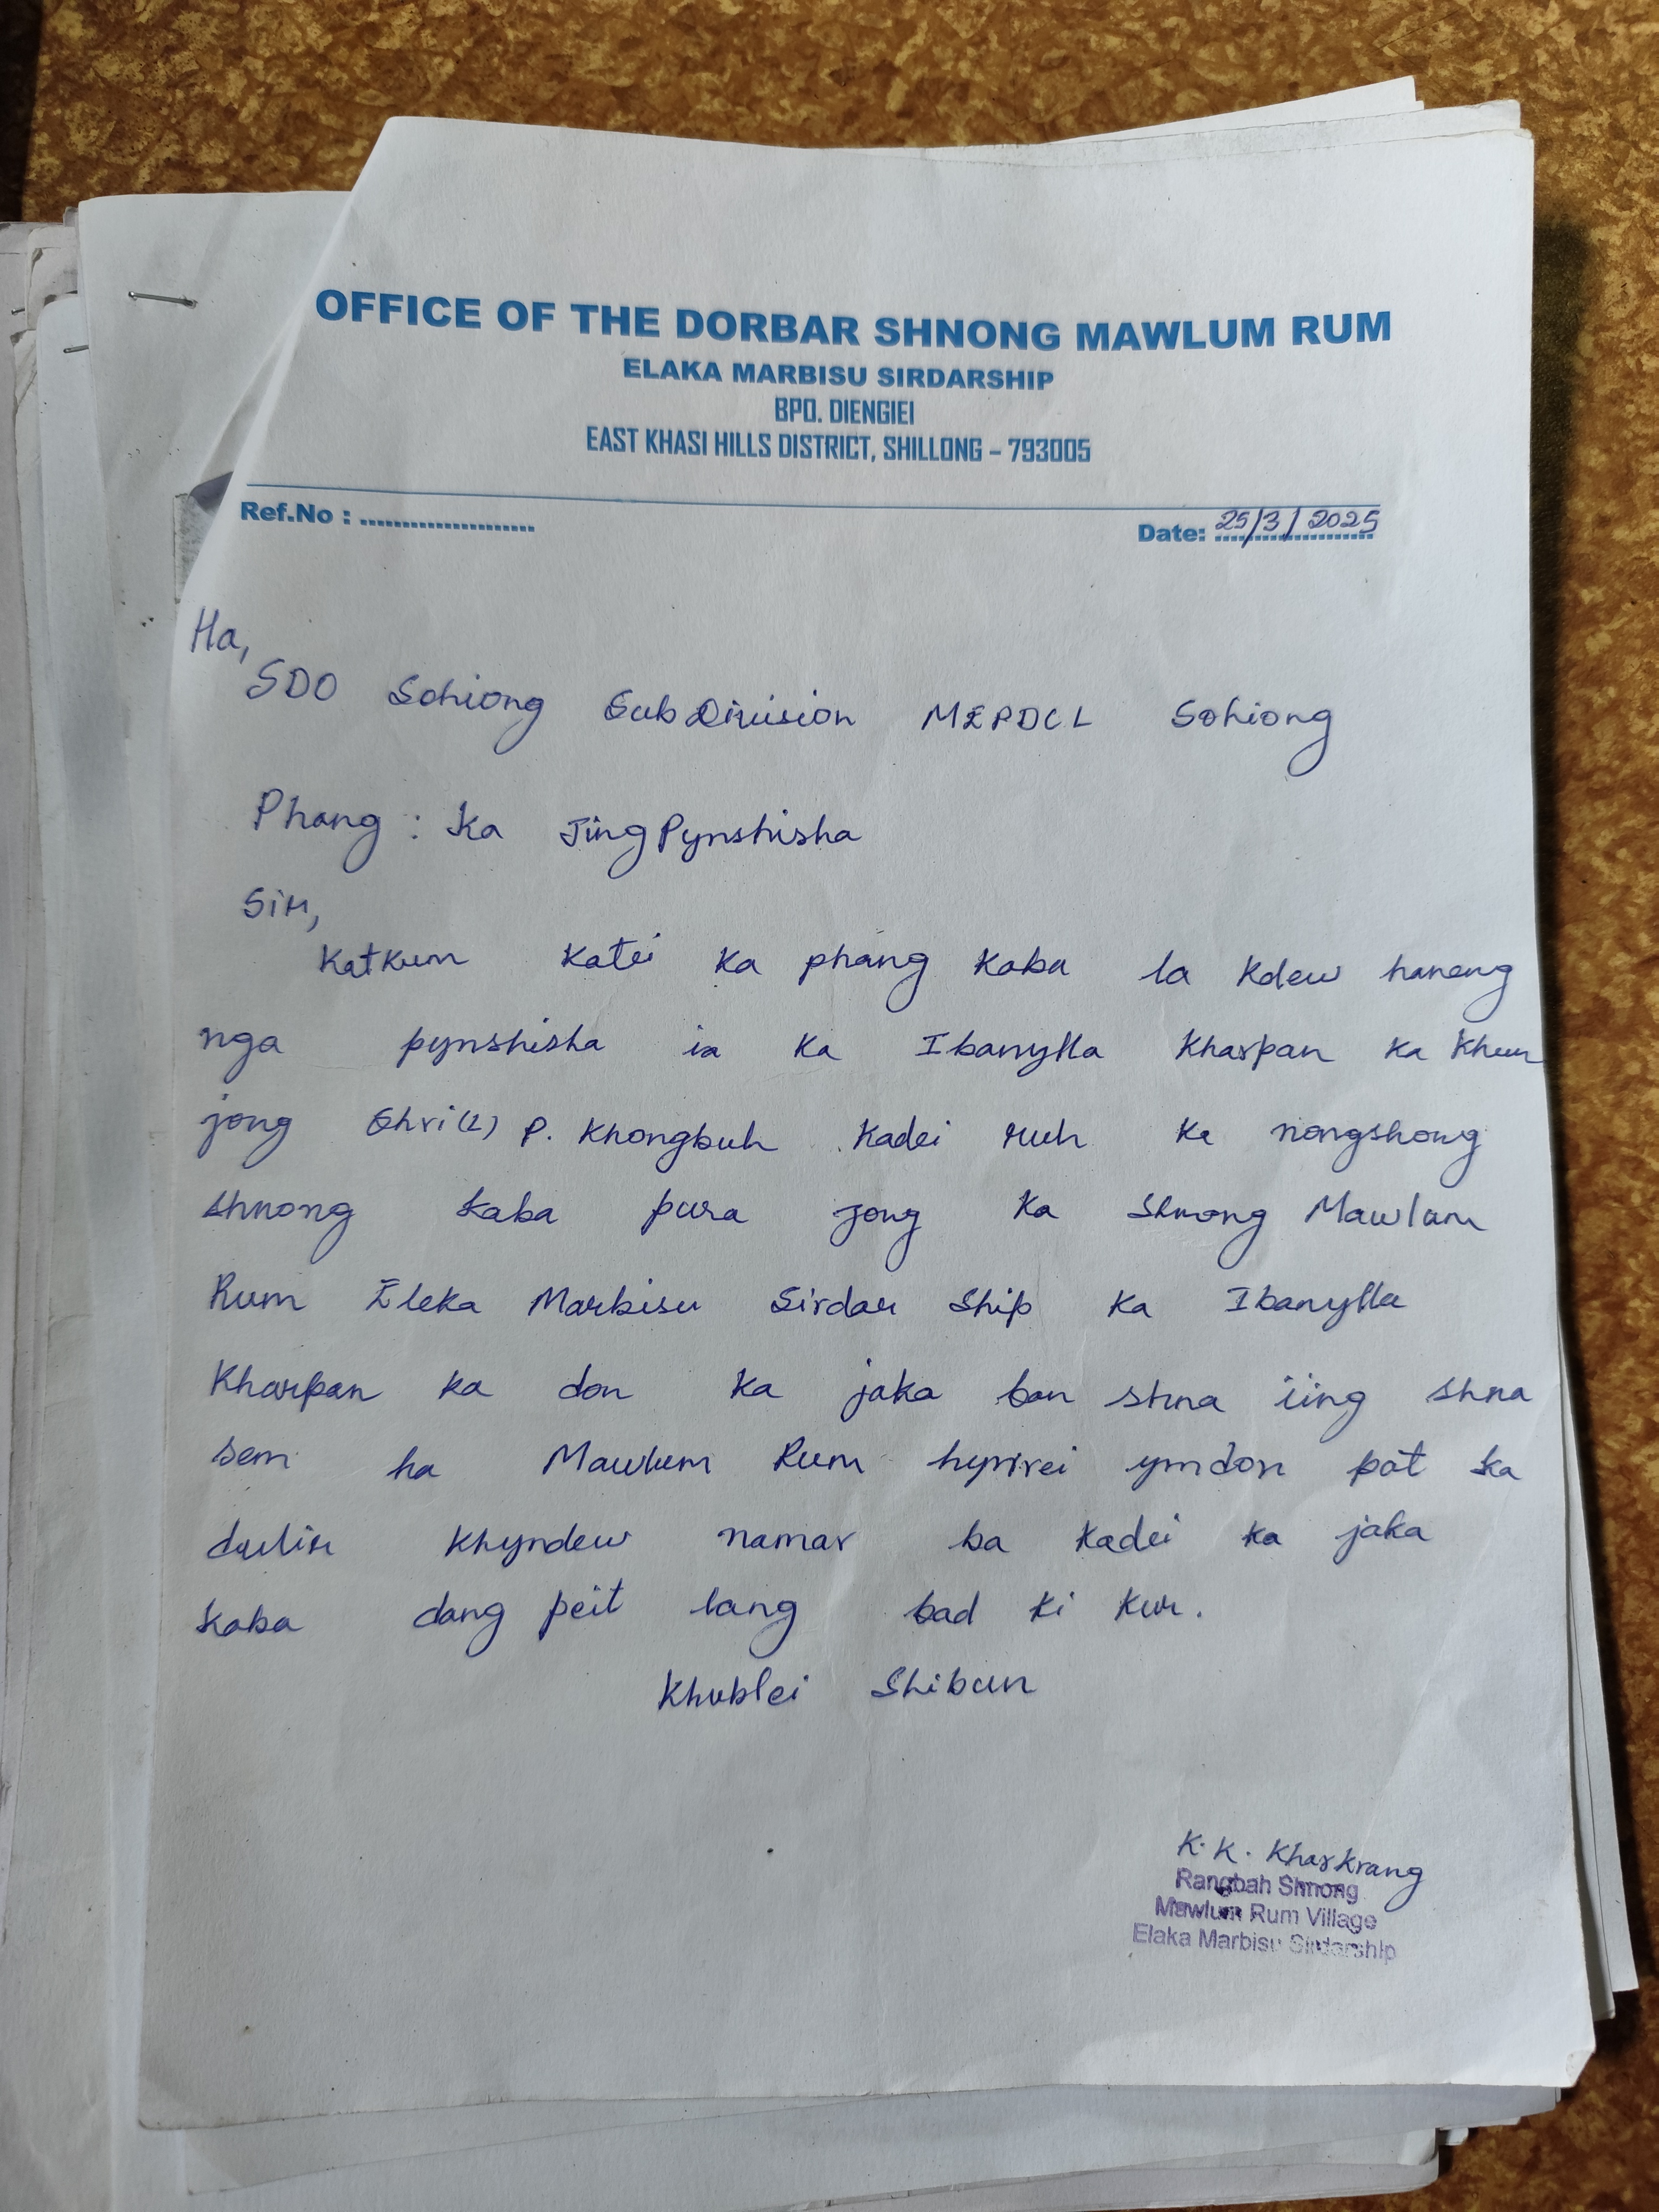 OFFICE OF THE DORBAR SHNONG MAWLUM RUM
ELAKA MARBISU SIRDARSHIP
BPO. DIENGIEI
EAST KHASI HILLS DISTRICT, SHILLONG – 793005
Ref.No : ......................
Date: 25/3/2025
Ha,
SDO Sohiong SubDivision MEPDCL Sohiong
Phang : Ka JingPynshisha
Sir,
Katkum katei ka phang kaba la kdew haneng
nga pynshisha ia ka Ibanylla Kharpan ka khun
jong Shri(L) P. Khongbuh Kadei ruh ka nongshong
shnong kaba pura jong ka Shnong Mawlum
Rum Eleka Marbisu Sirdar Ship ka Ibanylla
Kharpan ka don ka jaka ban shna iing shna
sem ha Mawlum Rum hynrei ymdon pat ka
dulir khyndew namar ba kadei ka jaka
kaba dang peit lang bad ki kur.
Khublei Shibun
K. K. Kharkrang
Rangbah Shnong
Mawlum Rum Village
Elaka Marbisu Sirdarship